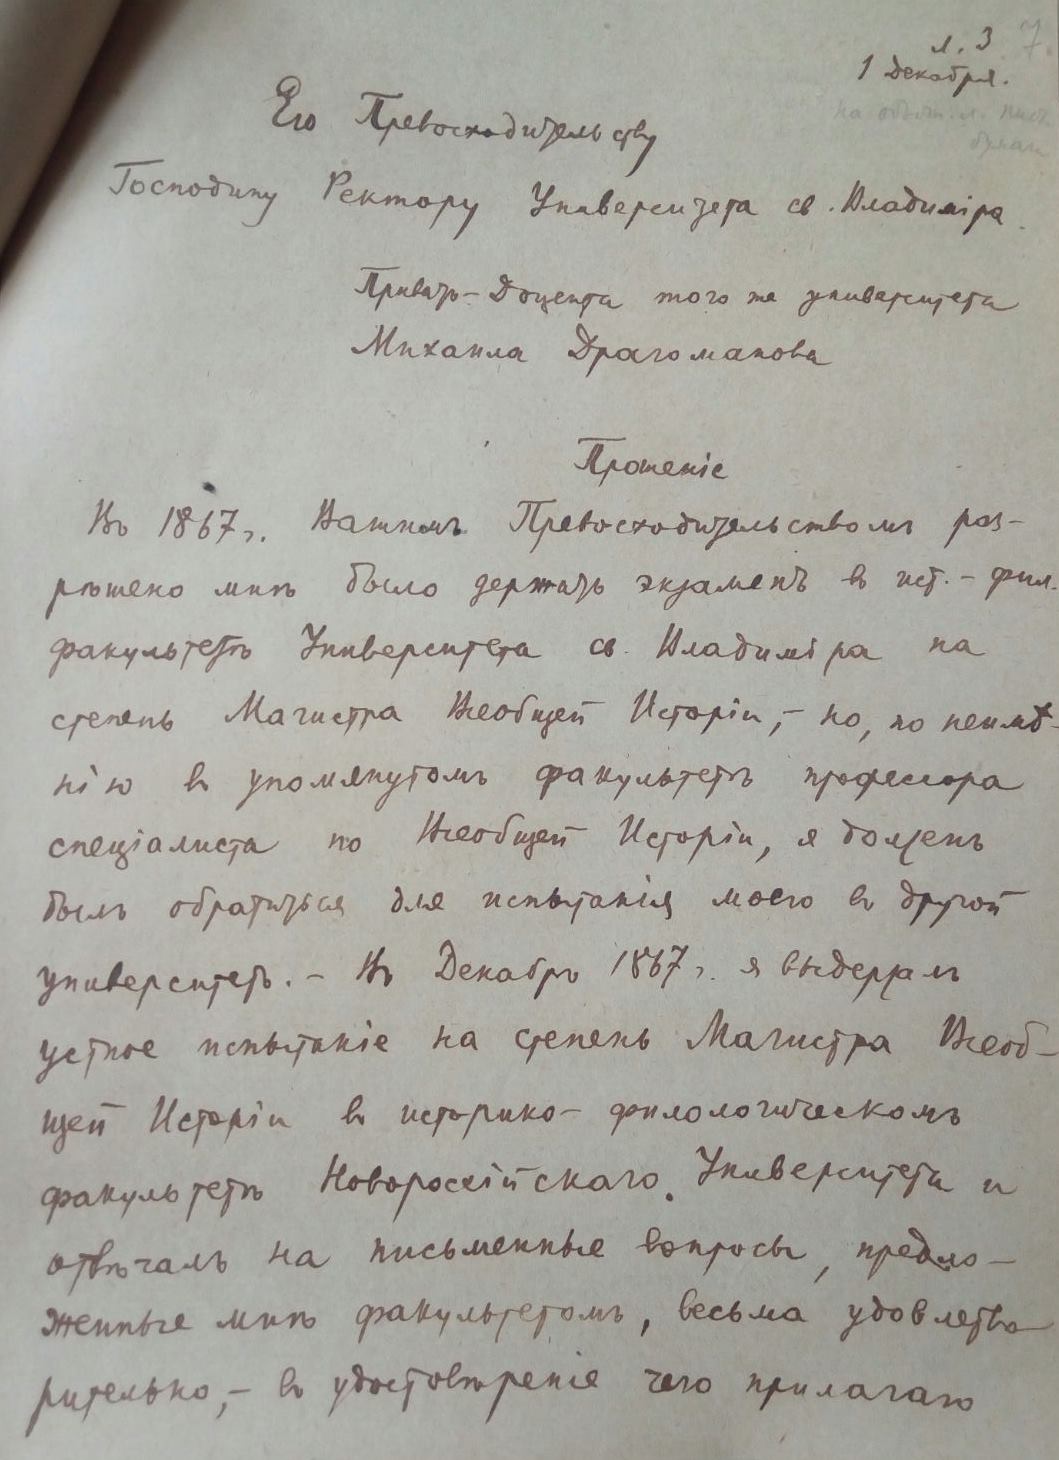 л. 3 7.
1 Декабря.
на обыкн. л. писч.
бумаги
Его Превосходительству
Господину Ректору Университета св. Владиміра.
Приватъ-Доцента того же университета
Михаила Драгоманова
Прошеніе
Въ 1867 г. Вашимъ Превосходительствомъ раз-
рѣшено мнѣ было держать экзаменъ въ ист.-фил.
факультетѣ Университета св. Владиміра на
степень Магистра Всеобщей Исторіи, – но, по неимѣ-
нію въ упомянутомъ факультетѣ профессора
спеціалиста по Всеобщей Исторіи, я долженъ
былъ обратиться для испытанія моего въ другой
университетъ. – Въ Декабрѣ 1867 г. я выдержалъ
устное испытаніе на степень Магистра Всеоб-
щей Исторіи въ историко-филологическомъ
факультетѣ Новороссійскаго Университета и
отвѣчалъ на письменные вопросы, предло-
женные мнѣ факультетомъ, весьма удовлетво
рительно, – въ удостовѣреніе чего прилагаю